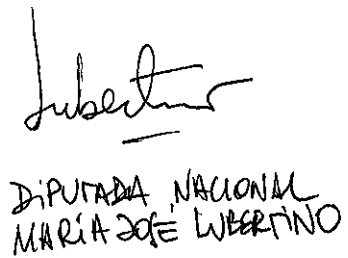 Lubertino
DIPUTADA NACIONAL
MARÍA JOSÉ LUBERTINO